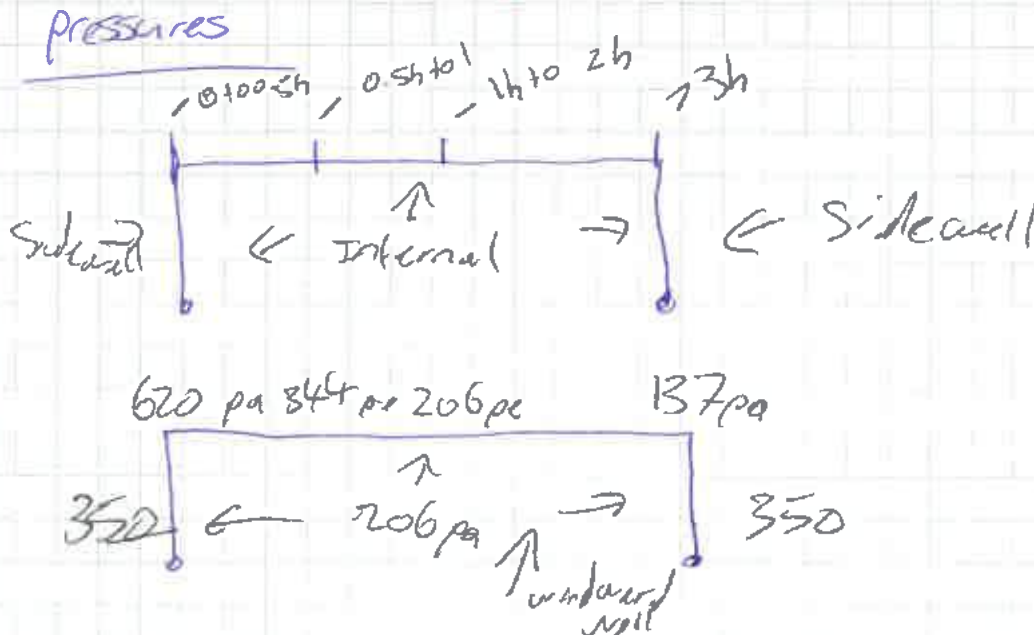 pressures
0 to 0.5h 0.5h to 1 1h to 2h 3h
Sidewall Internal Sidewall
620 pa 344 pa 206 pa 137 pa
350 206 pa 350
windward
wall